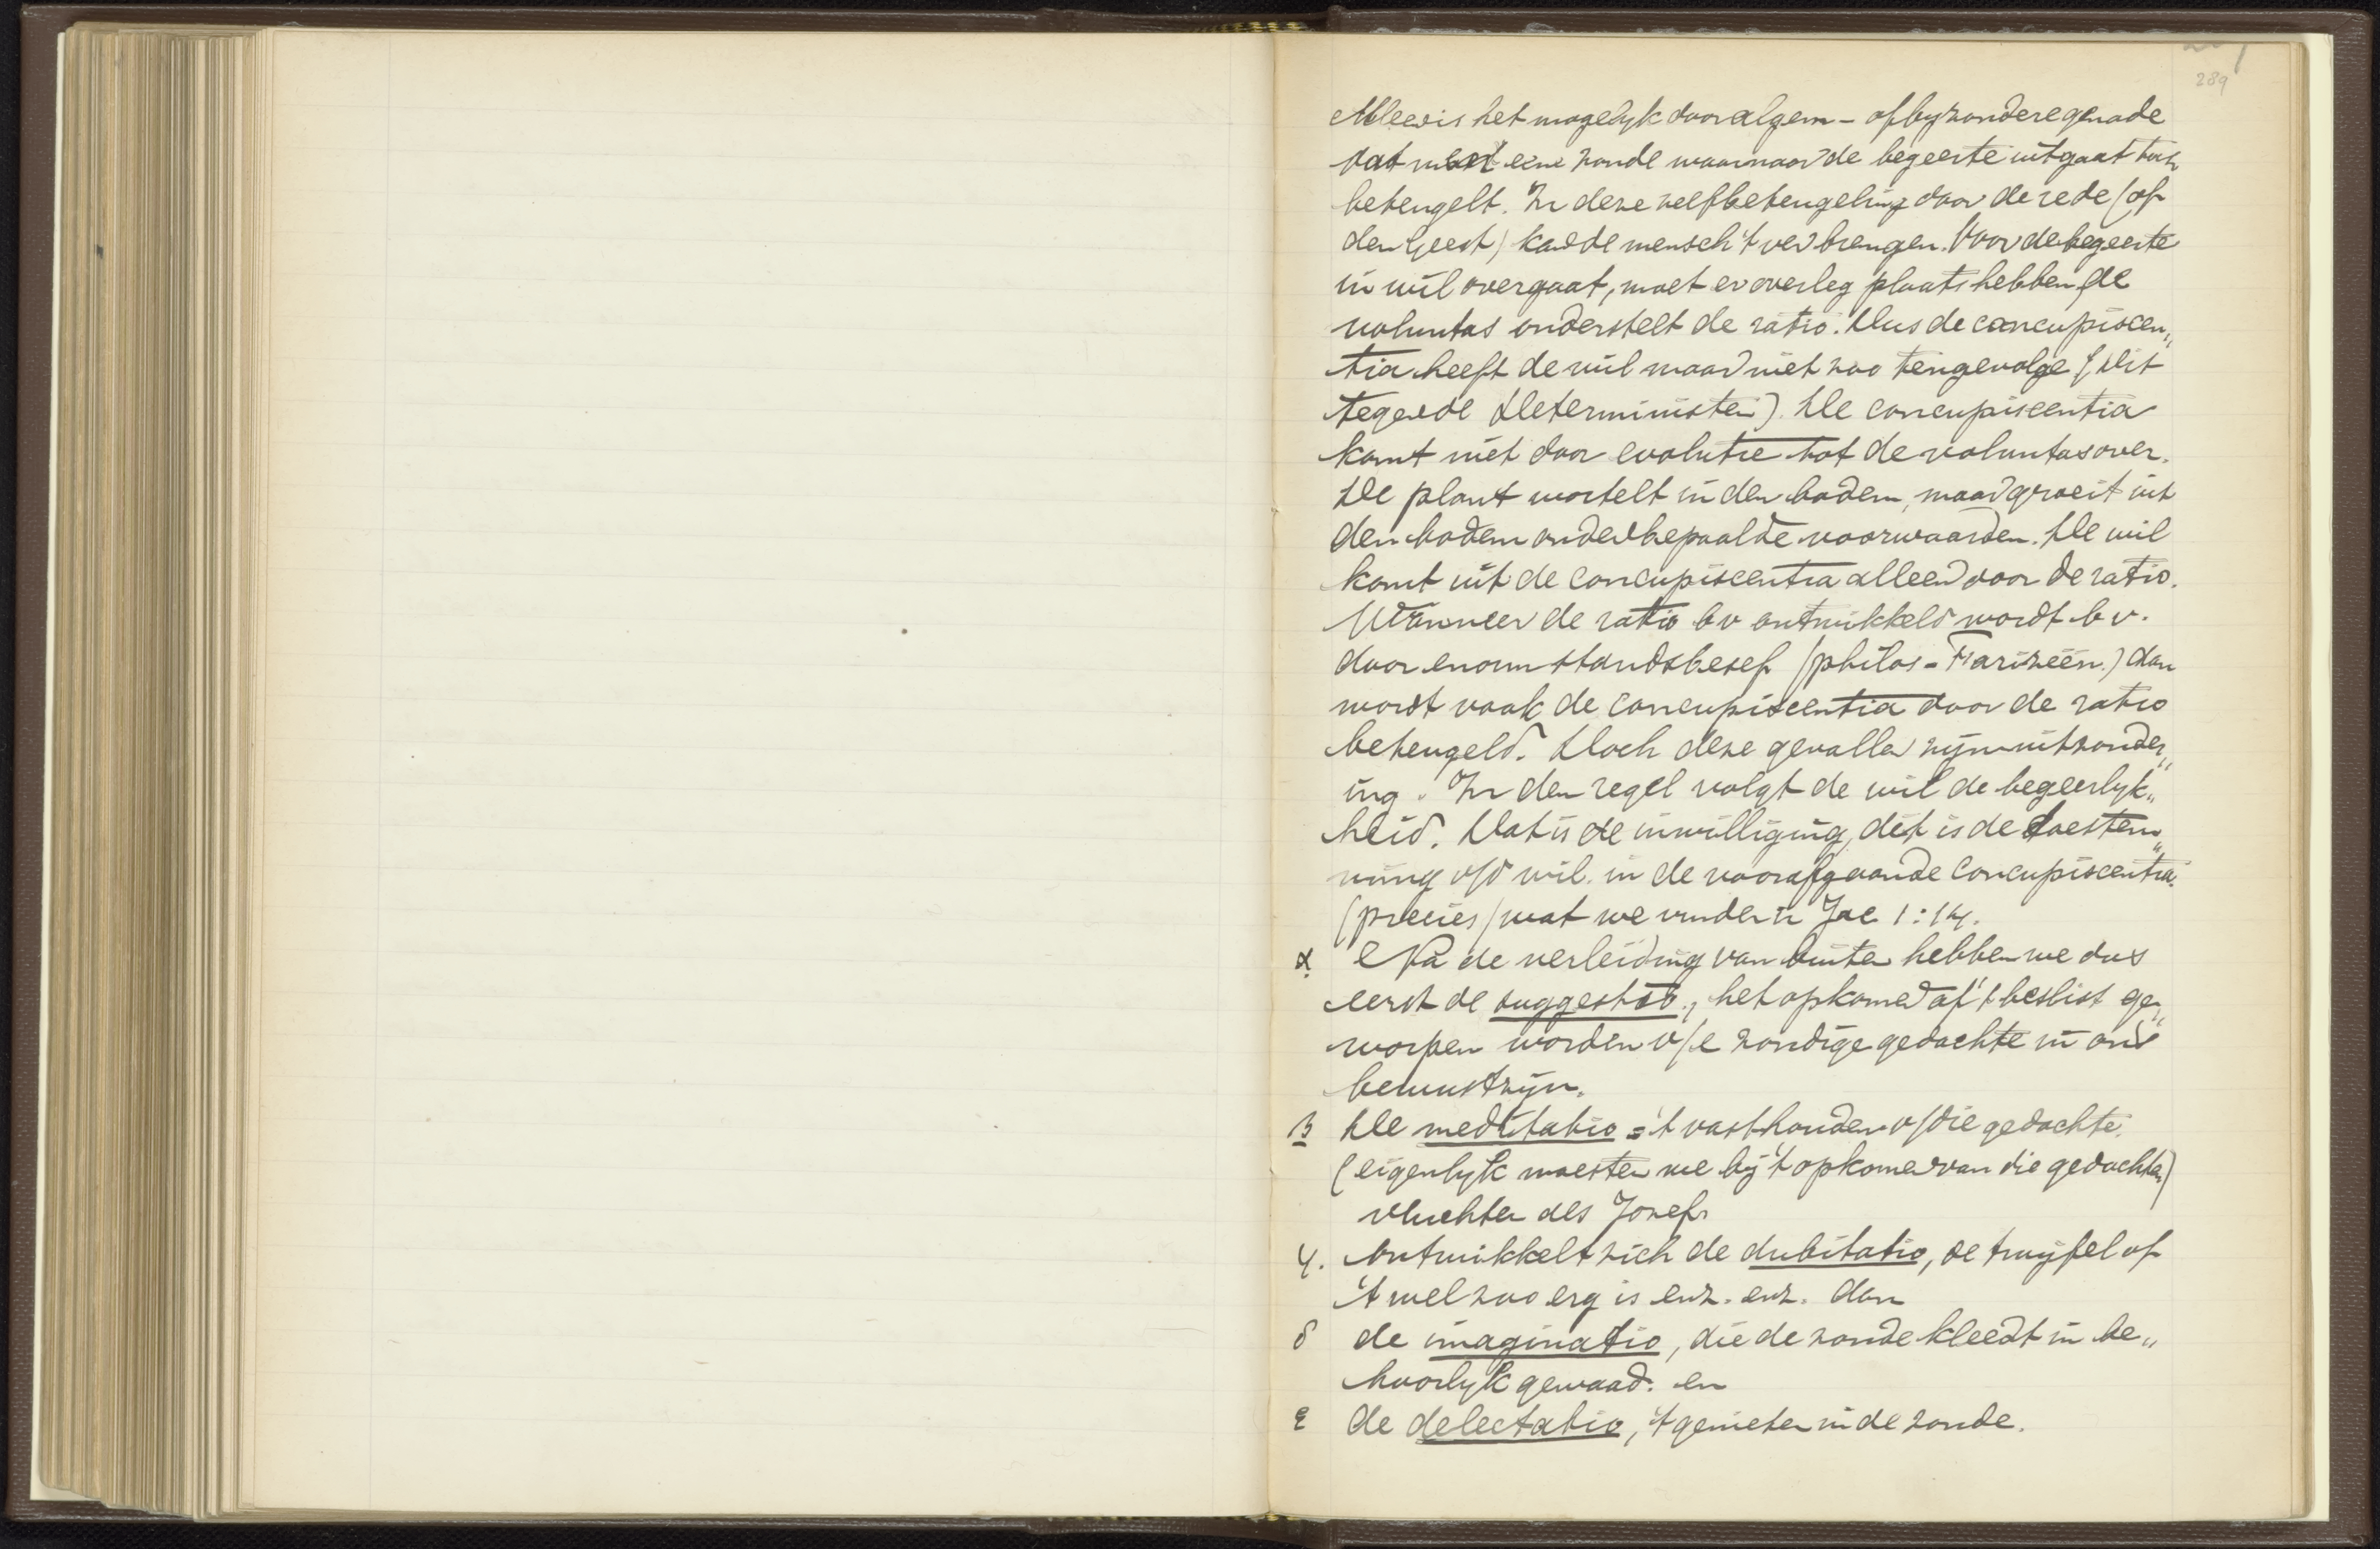 289
Alleen is het mogelyk door algem- of byzondere genade
dat men eene zonde waarnaar de begeerte uitgaat toch
beteugelt. In deze zelfbeteugeling door de rede (of
den Geest) kan de mensch 't ver brengen. Voor de begeerte
in wil overgaat, moet er overleg plaats hebben, de
voluntas onderstelt de ratio. Dus de concupiscen„
tia heeft de wil maar niet zoo tengevolge (dit
tegen de Deterministen). De concupiscentia
komt niet door evolutie tot de voluntas over.
De plant wortelt in den bodem, maar groeit uit
den bodem onder bepaalde voorwaarden. De wil
komt uit de concupiscentia alleen door de ratio.
Wanneer de ratio bv ontwikkeld wordt b v.
door enorm standsbesef (philos - Farizeën.) dan
wordt vaak de concupiscentia door de ratio
beteugeld. Doch deze gevallen zijn uitzonder„
ing. In den regel volgt de wil de begeerlyk„
heid. Dat is de inwilliging, dit is de toestem„
ming v/d wil in de voorafgaande concupiscentia.
(precies) wat we vinden in Jac 1:14.
α. Na de verleiding van buiten hebben we dus
eerst de suggestio, het opkomen of 't beslist ge„
worpen worden v/e zondige gedachte in ons
bewustzijn.
β De meditatio = 't vasthouden v/die gedachte.
(eigenlyk moesten we bij 't opkomen van die gedachten)
vluchten als Jozef.
γ. Ontwikkelt zich de dubitatio, de twijfel of
't wel zoo erg is enz. enz. dan
δ de imaginatio, die de zonde kleedt in be„
hoorlyk gewaad. en
ε de delectatio, 't genieten in de zonde.